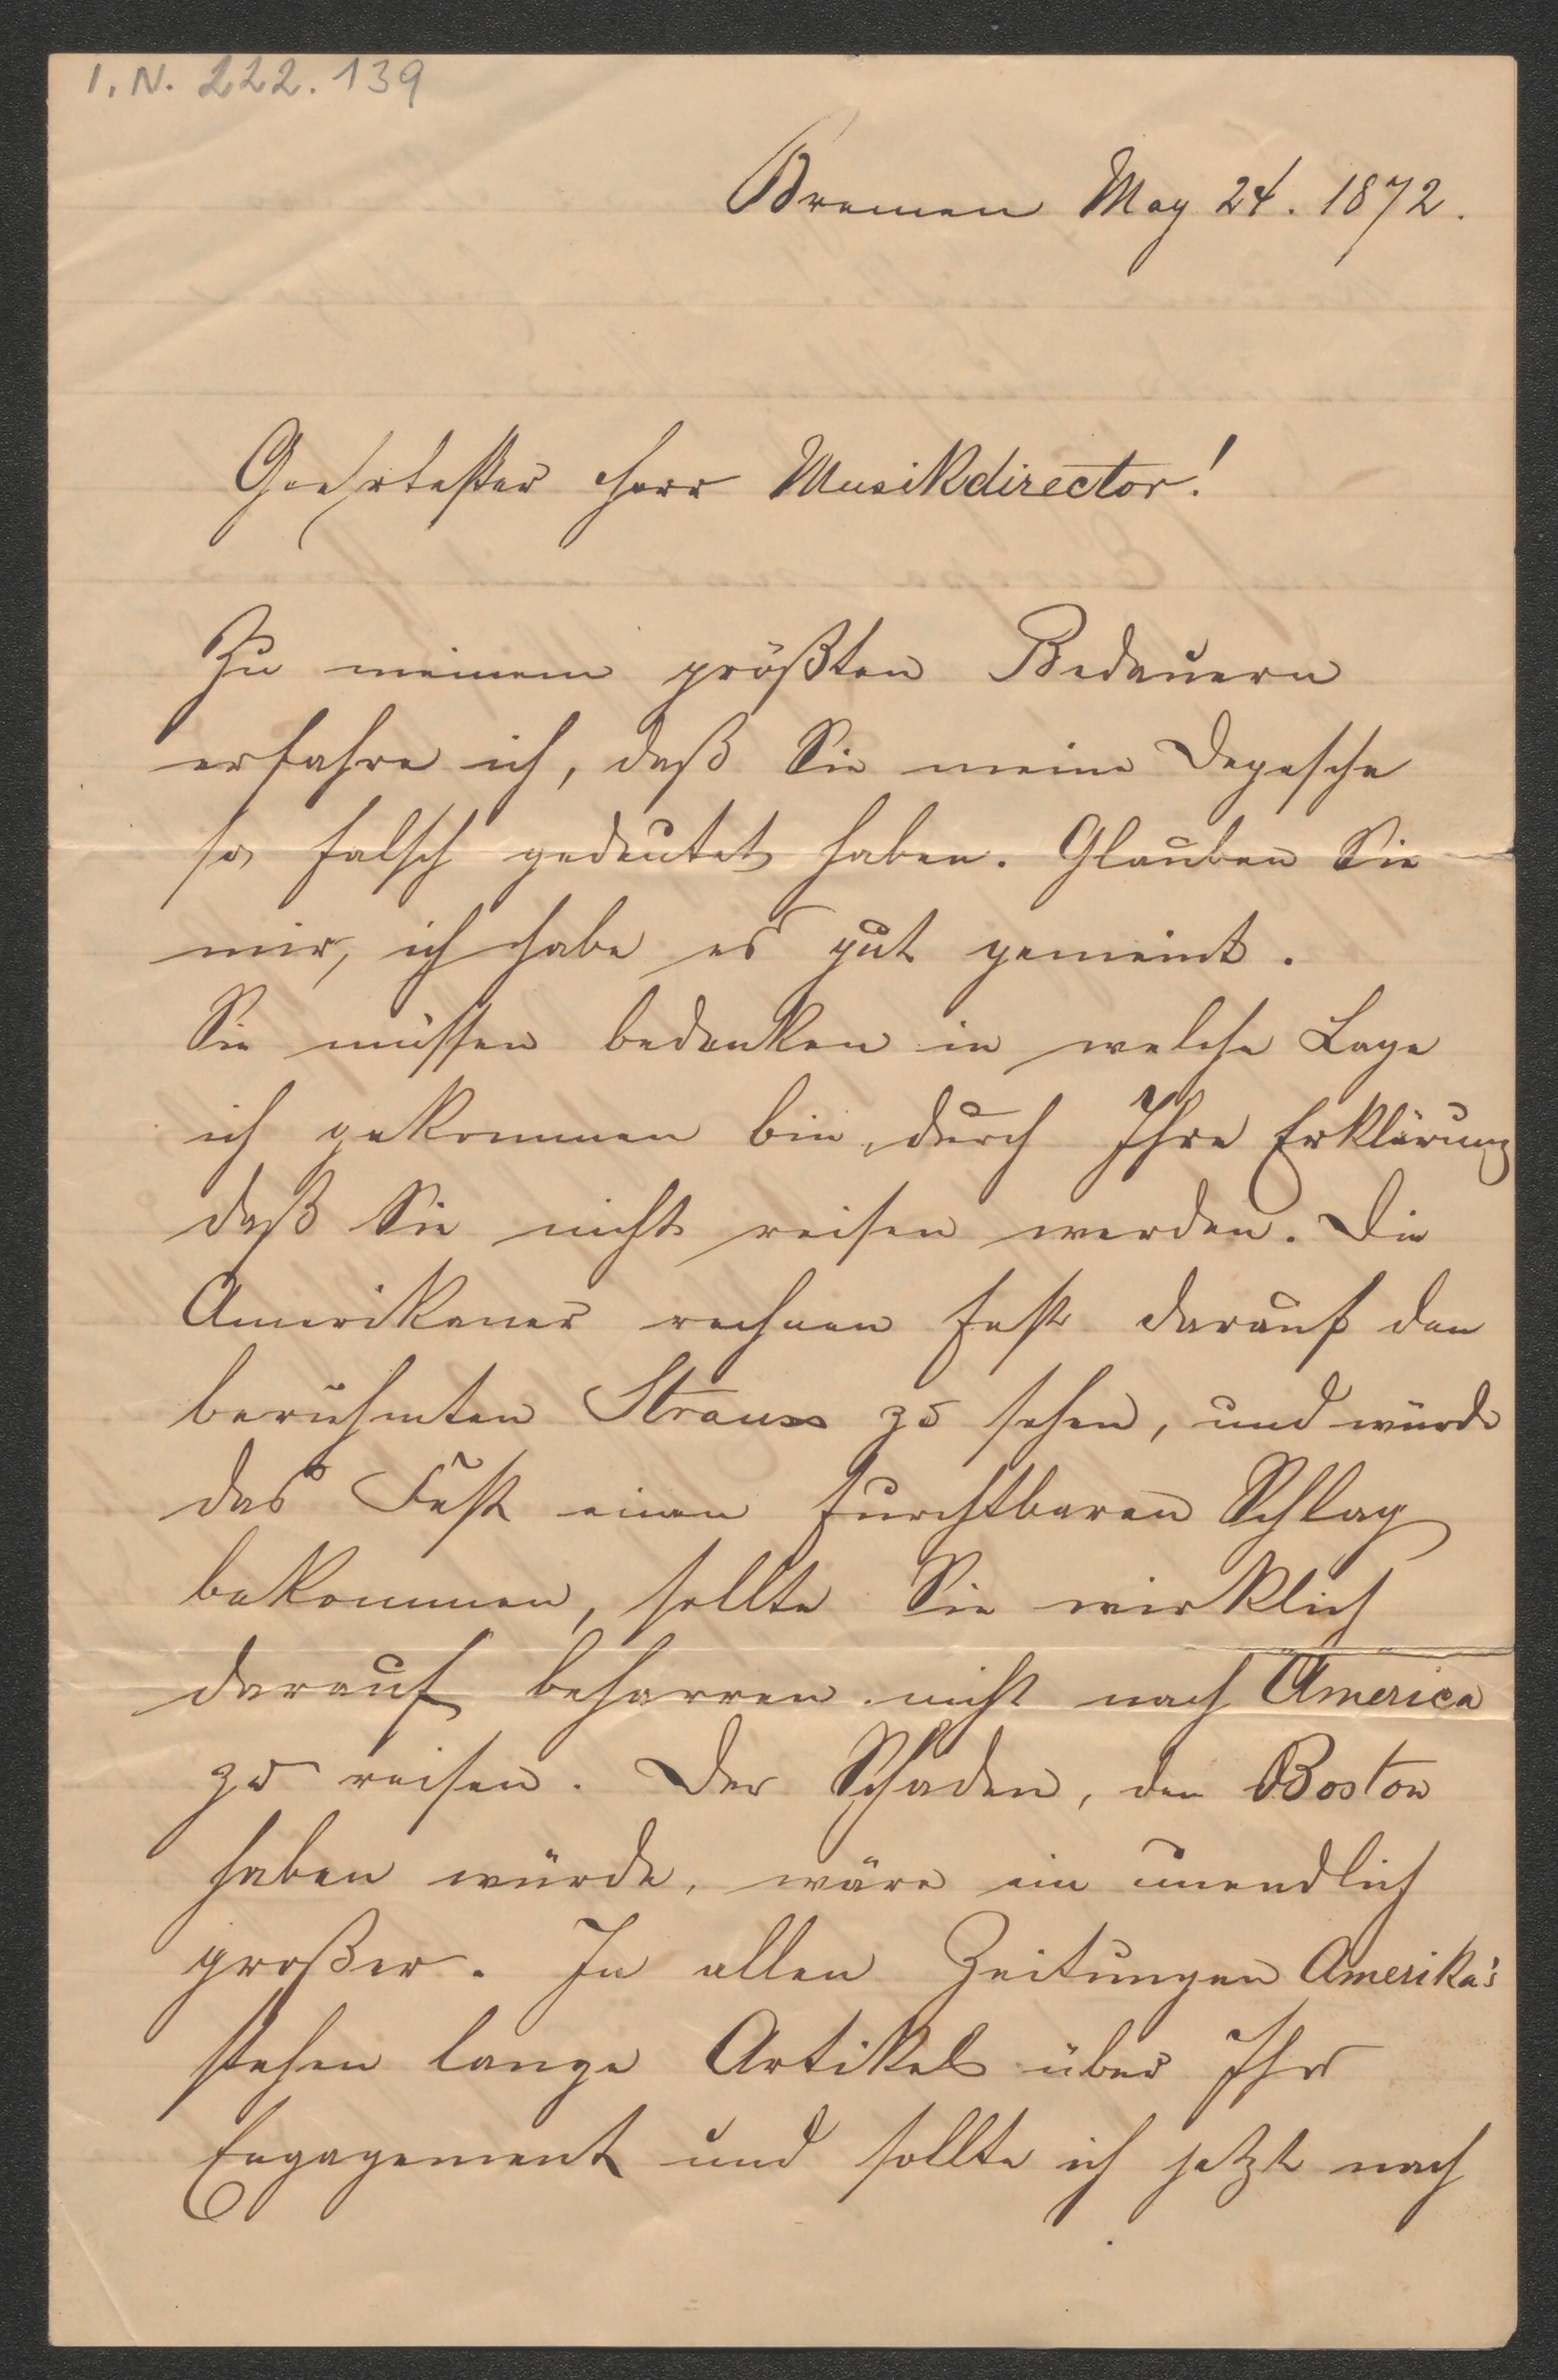 I. N. 222.139
Bremen May 24. 1872.
Geehrtester Herr Musikdirector!
Zu meinem größten Bedauern
erfahre ich, daß Sie meine Depesche
so falsch gedeutet haben. Glauben Sie
mir, ich habe es gut gemeint.
Sie müssen bedenken in welche Lage
ich gekommen bin, durch Ihre Erklärung
daß Sie nicht reisen werden. Die
Amerikaner rechnen fest darauf den
berühmten Strauss zu sehen, und würde
das Fest einen furchtbaren Schlag
bekommen, sollte Sie wirklich
darauf beharren nicht nach America
zu reisen. Der Schaden, den Boston
haben würde, wäre ein unendlich
großer. In allen Zeitungen Amerika's
stehen lange Artikel über Ihr
Engagement und sollte ich jetzt nach